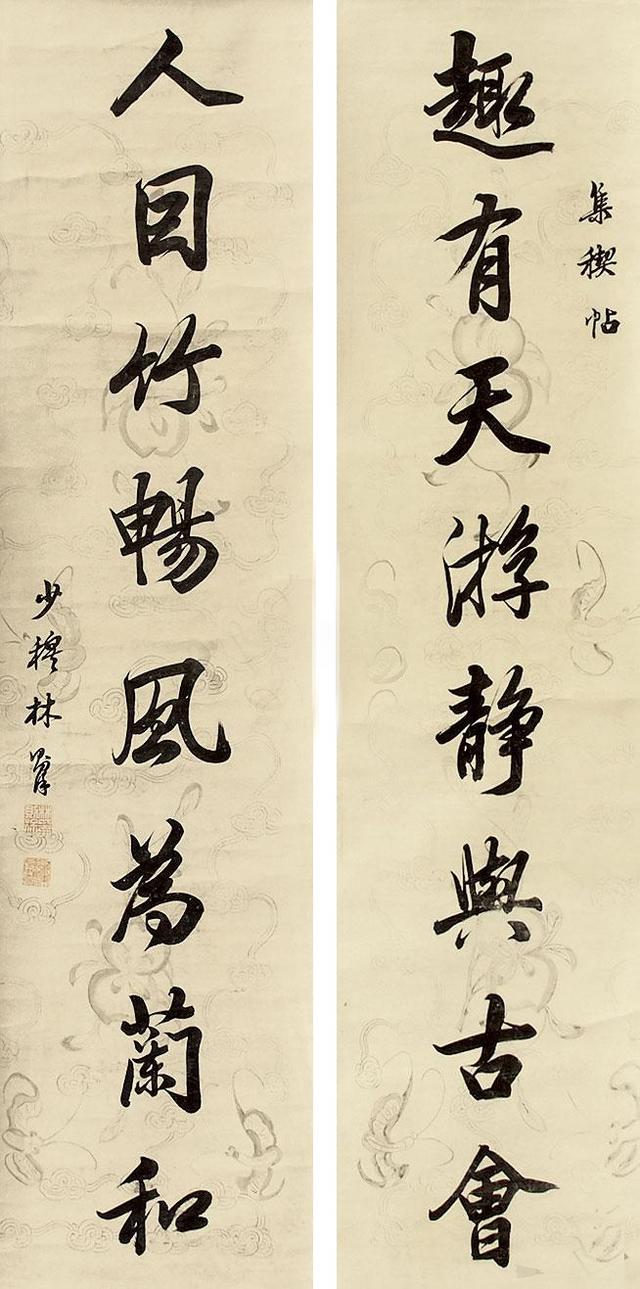 集稧帖
趣有天游静與古會
人因竹暢風為蘭和
少穆林